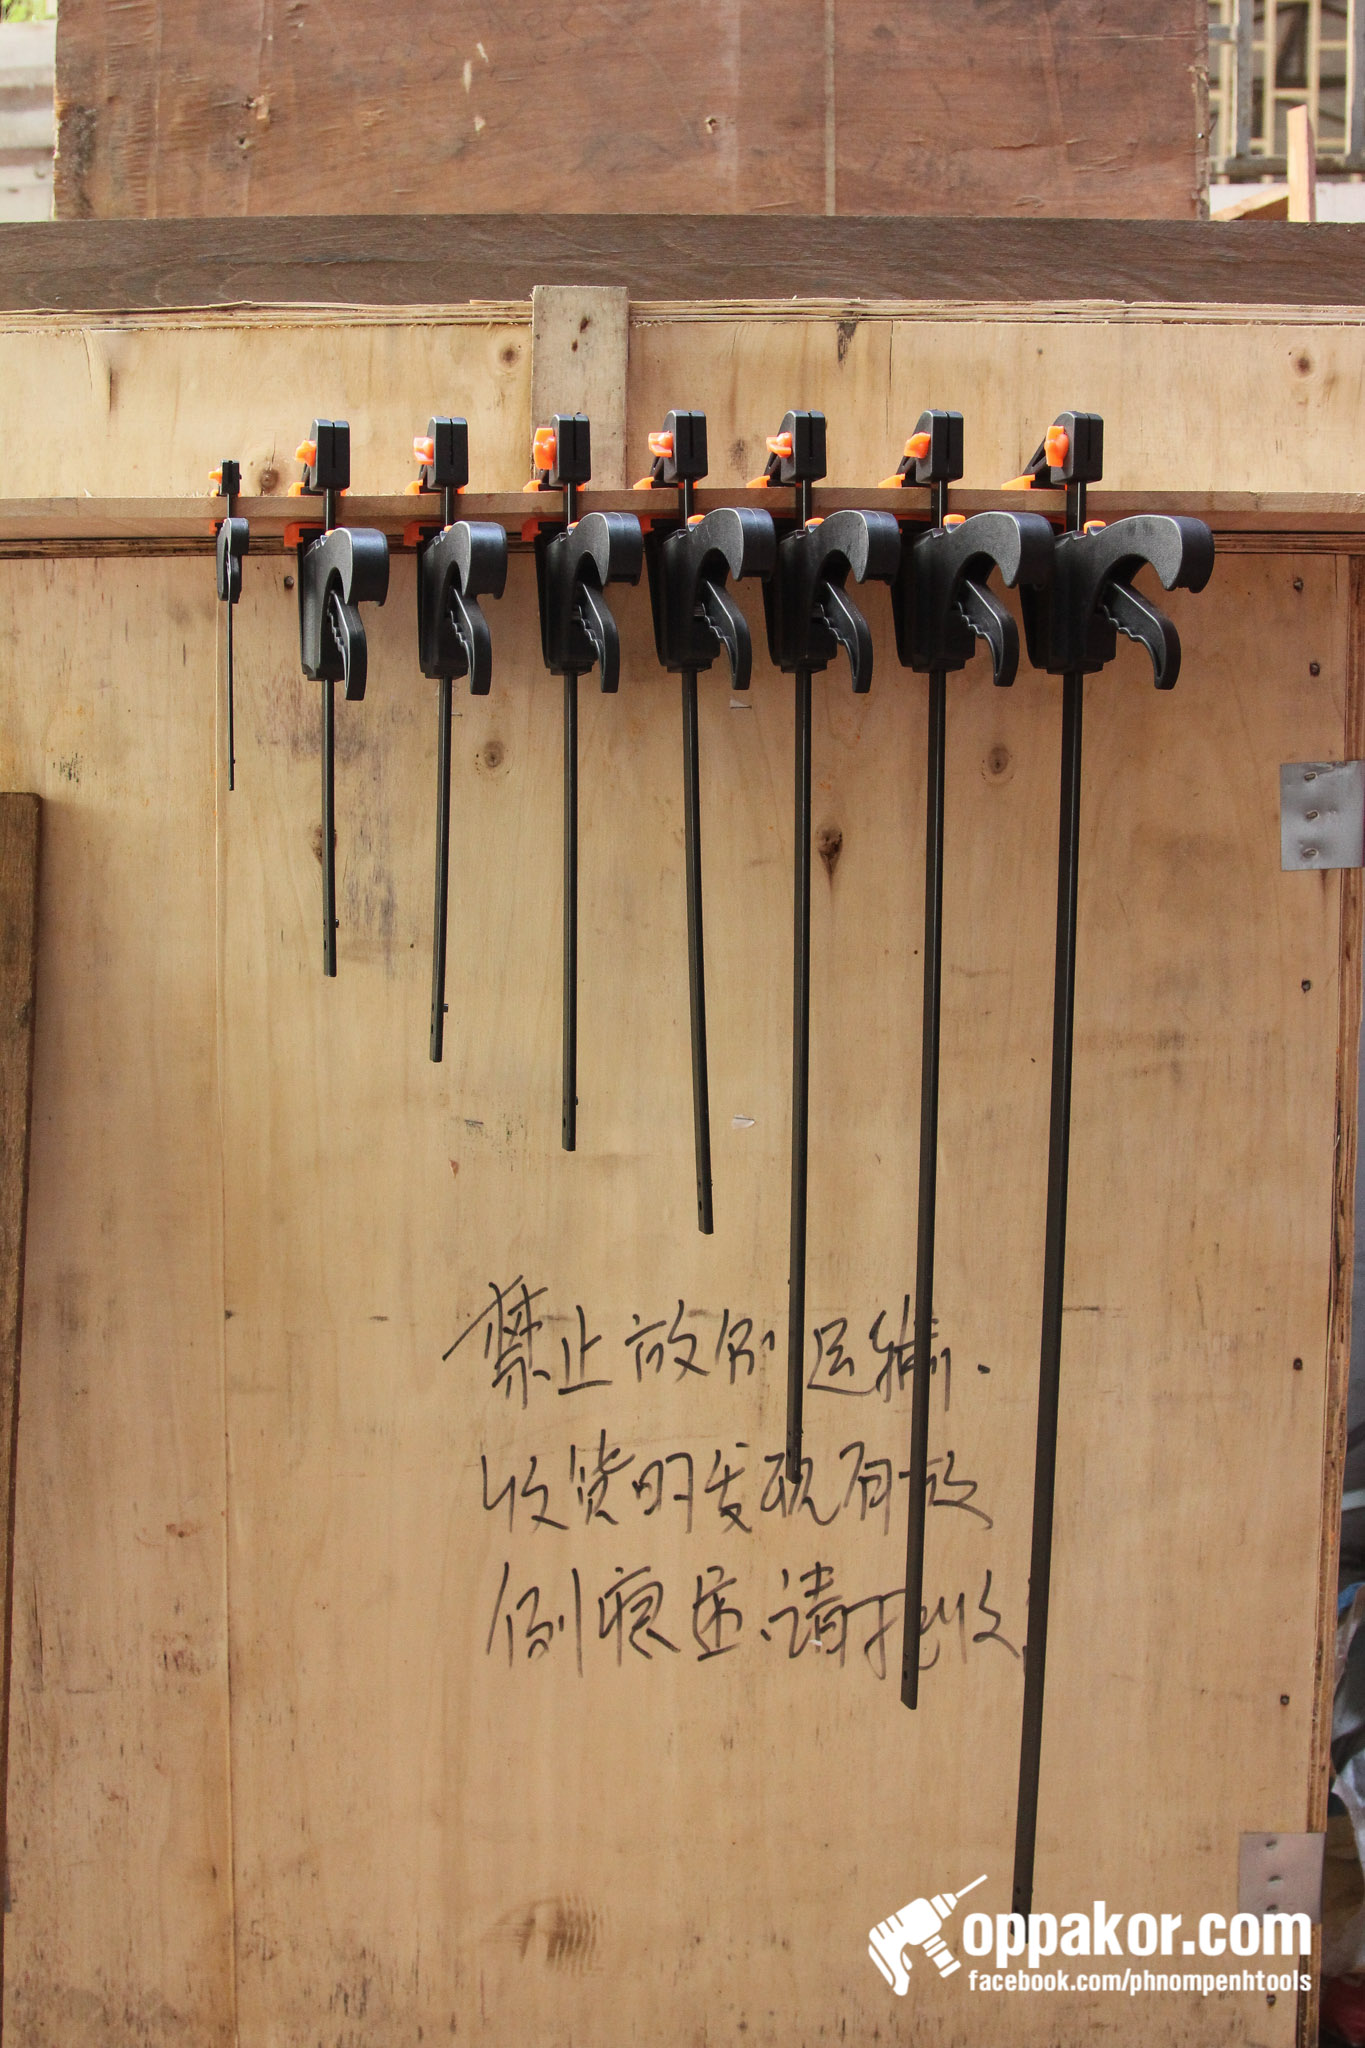 禁止放倒运输.
收货时发现有放
倒痕迹.请拒收.
oppakor.com
facebook.com/phnompenhtools